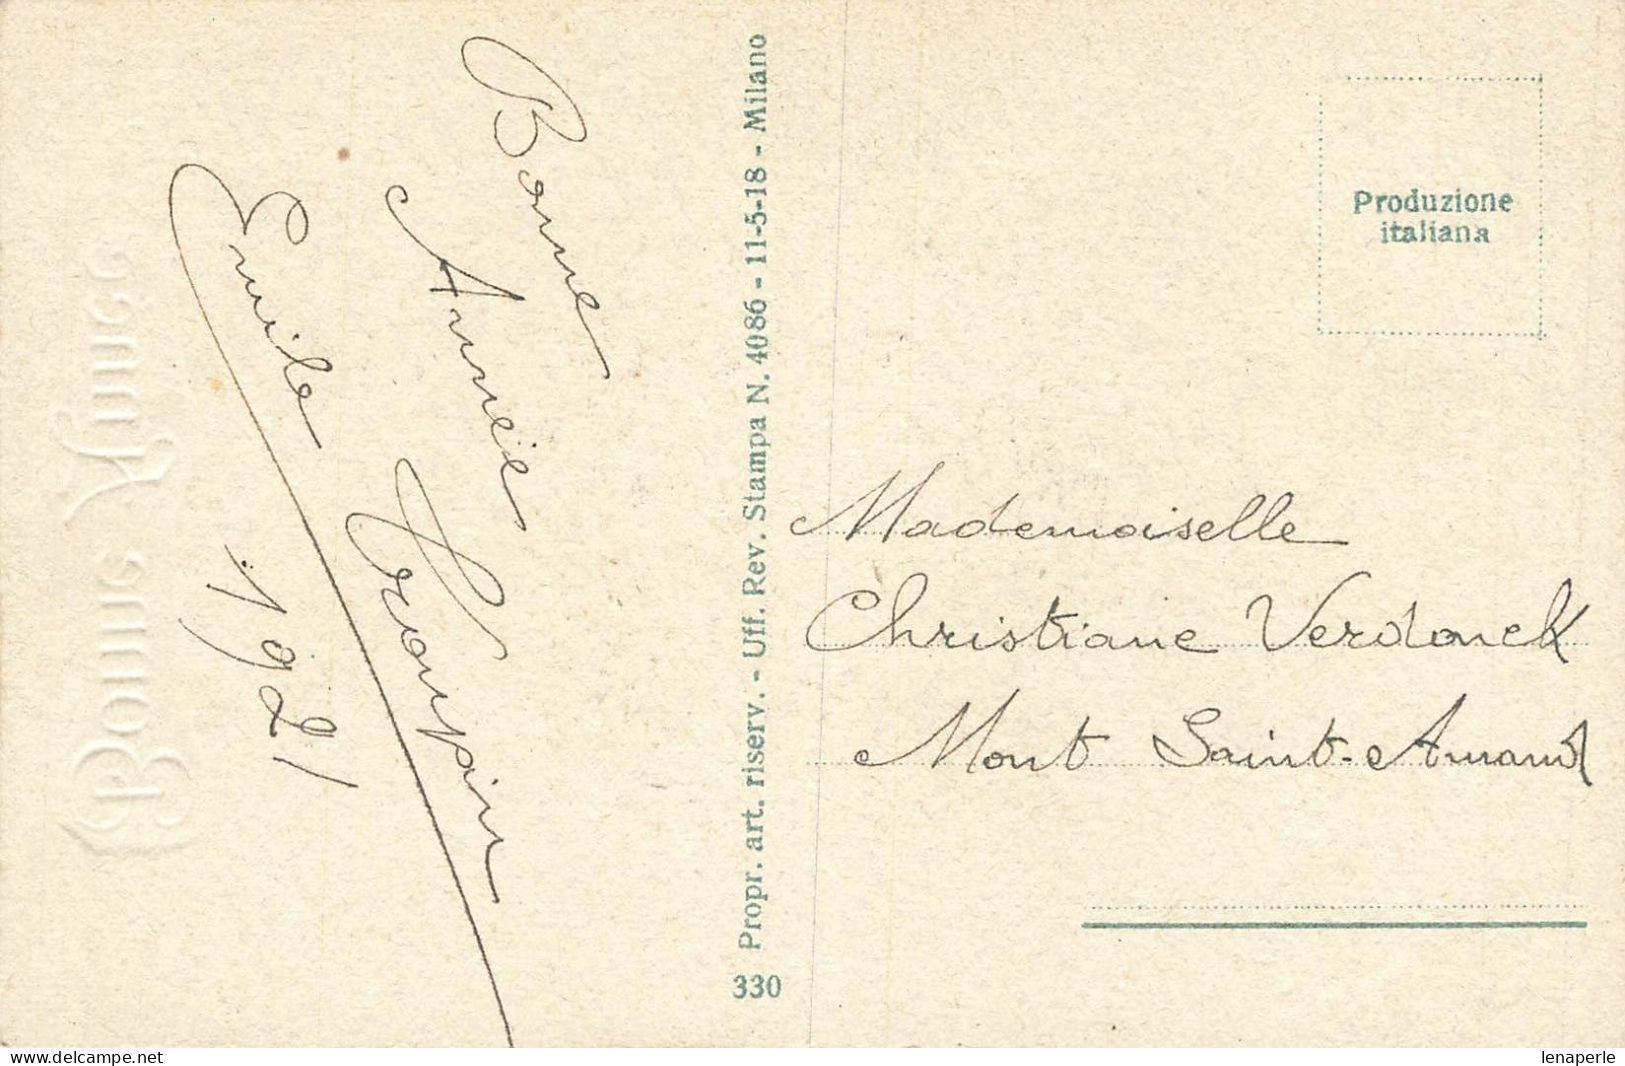 Bonne
Année
Emile Croupin
1921
Bonne Année
330 Propr. art. riserv. - Uff. Rev. Stampa N. 4086 - 11-5-18 - Milano
Produzione
italiana
Mademoiselle
Christiane Verdonck
Mont Saint-Amand
www.delcampe.net
lenaperle